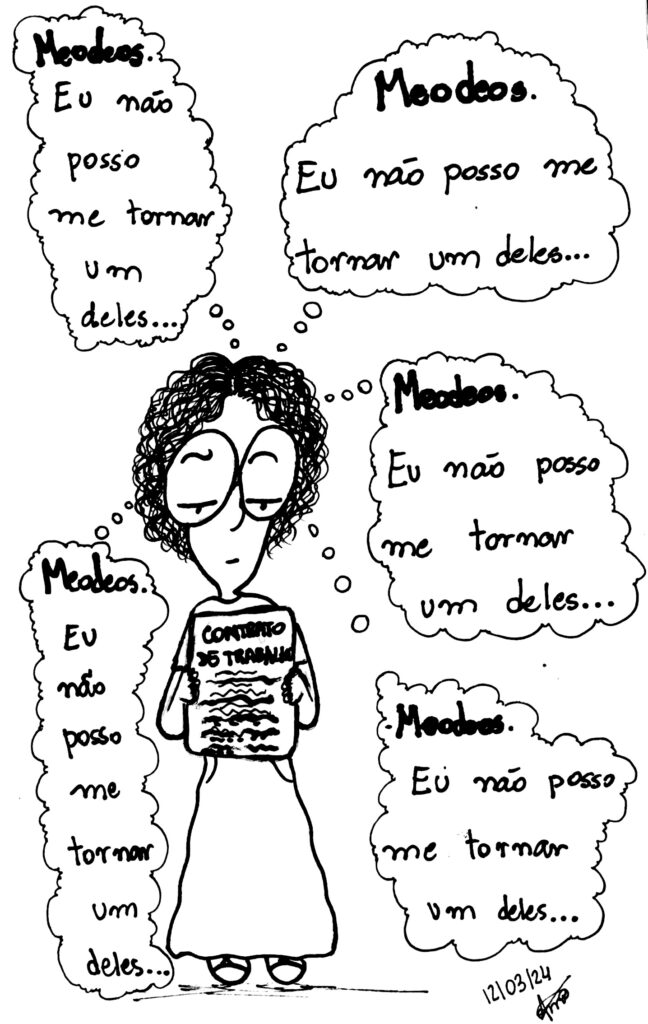 Meodeos.
Eu não
posso
me tornar
um
deles...
Meodeos.
Eu não posso me
tornar um deles...
Meodeos.
Eu não posso
me tornar
um deles...
Meodeos.
Eu
não
posso
me
tornar
um
deles...
CONTRATO
DE TRABALHO
Meodeos.
Eu não posso
me tornar
um deles...
12/03/24